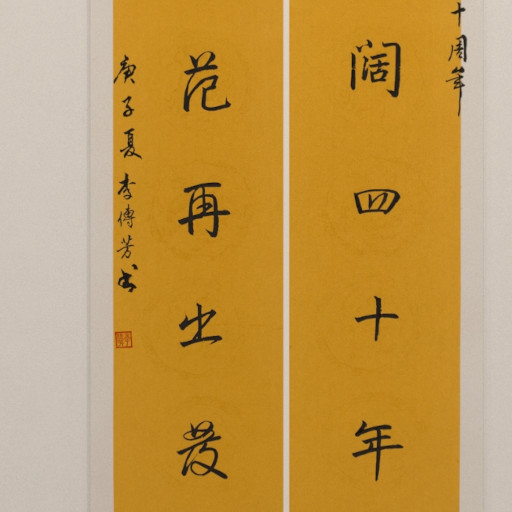 十周年
阔四十年
范再出發
庚子夏李傳芳书